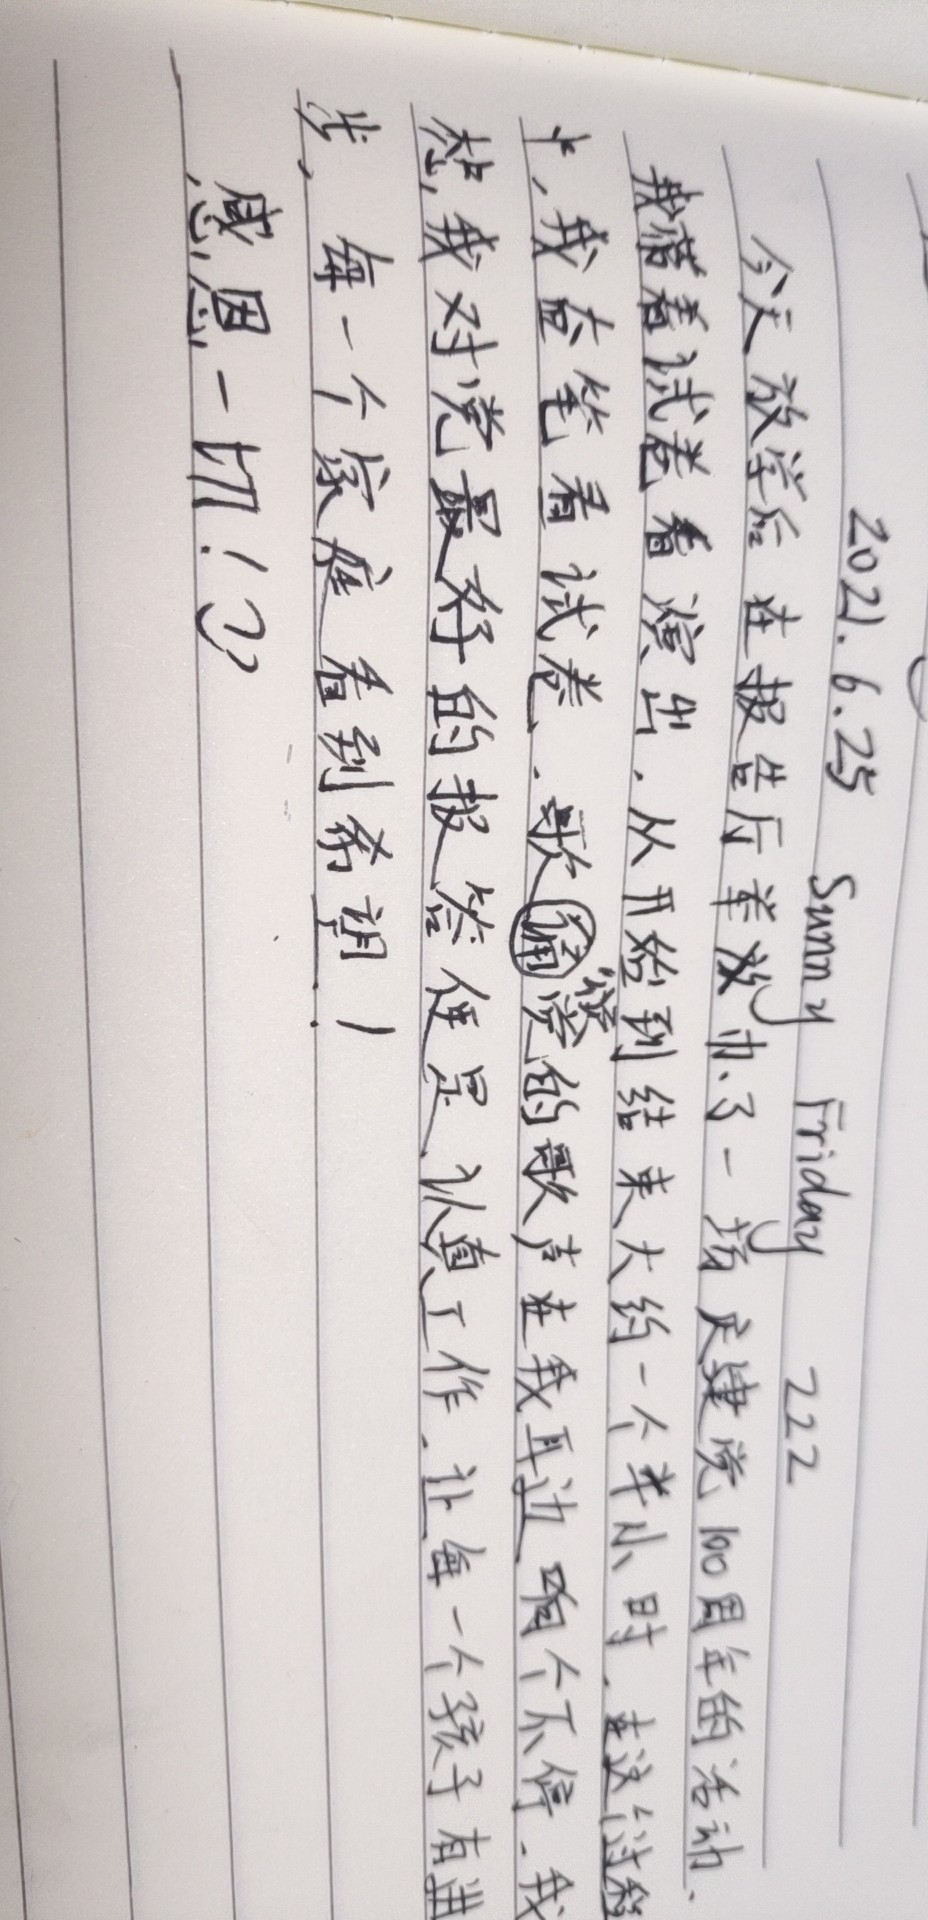 2021.6.25 Sunny Friday 222
今天放学后在报告厅举放办了一场庆建党100周年的活动、
我带着试卷看演出.从开始到结束大约一个半小时.在这个过程
中,我在笔看试卷.歌颂党的歌声在我耳边响个不停.我
想,我对党最好的报答便是认真工作.让每一个孩子有进
步,每一个家庭看到希望!
感恩一切!